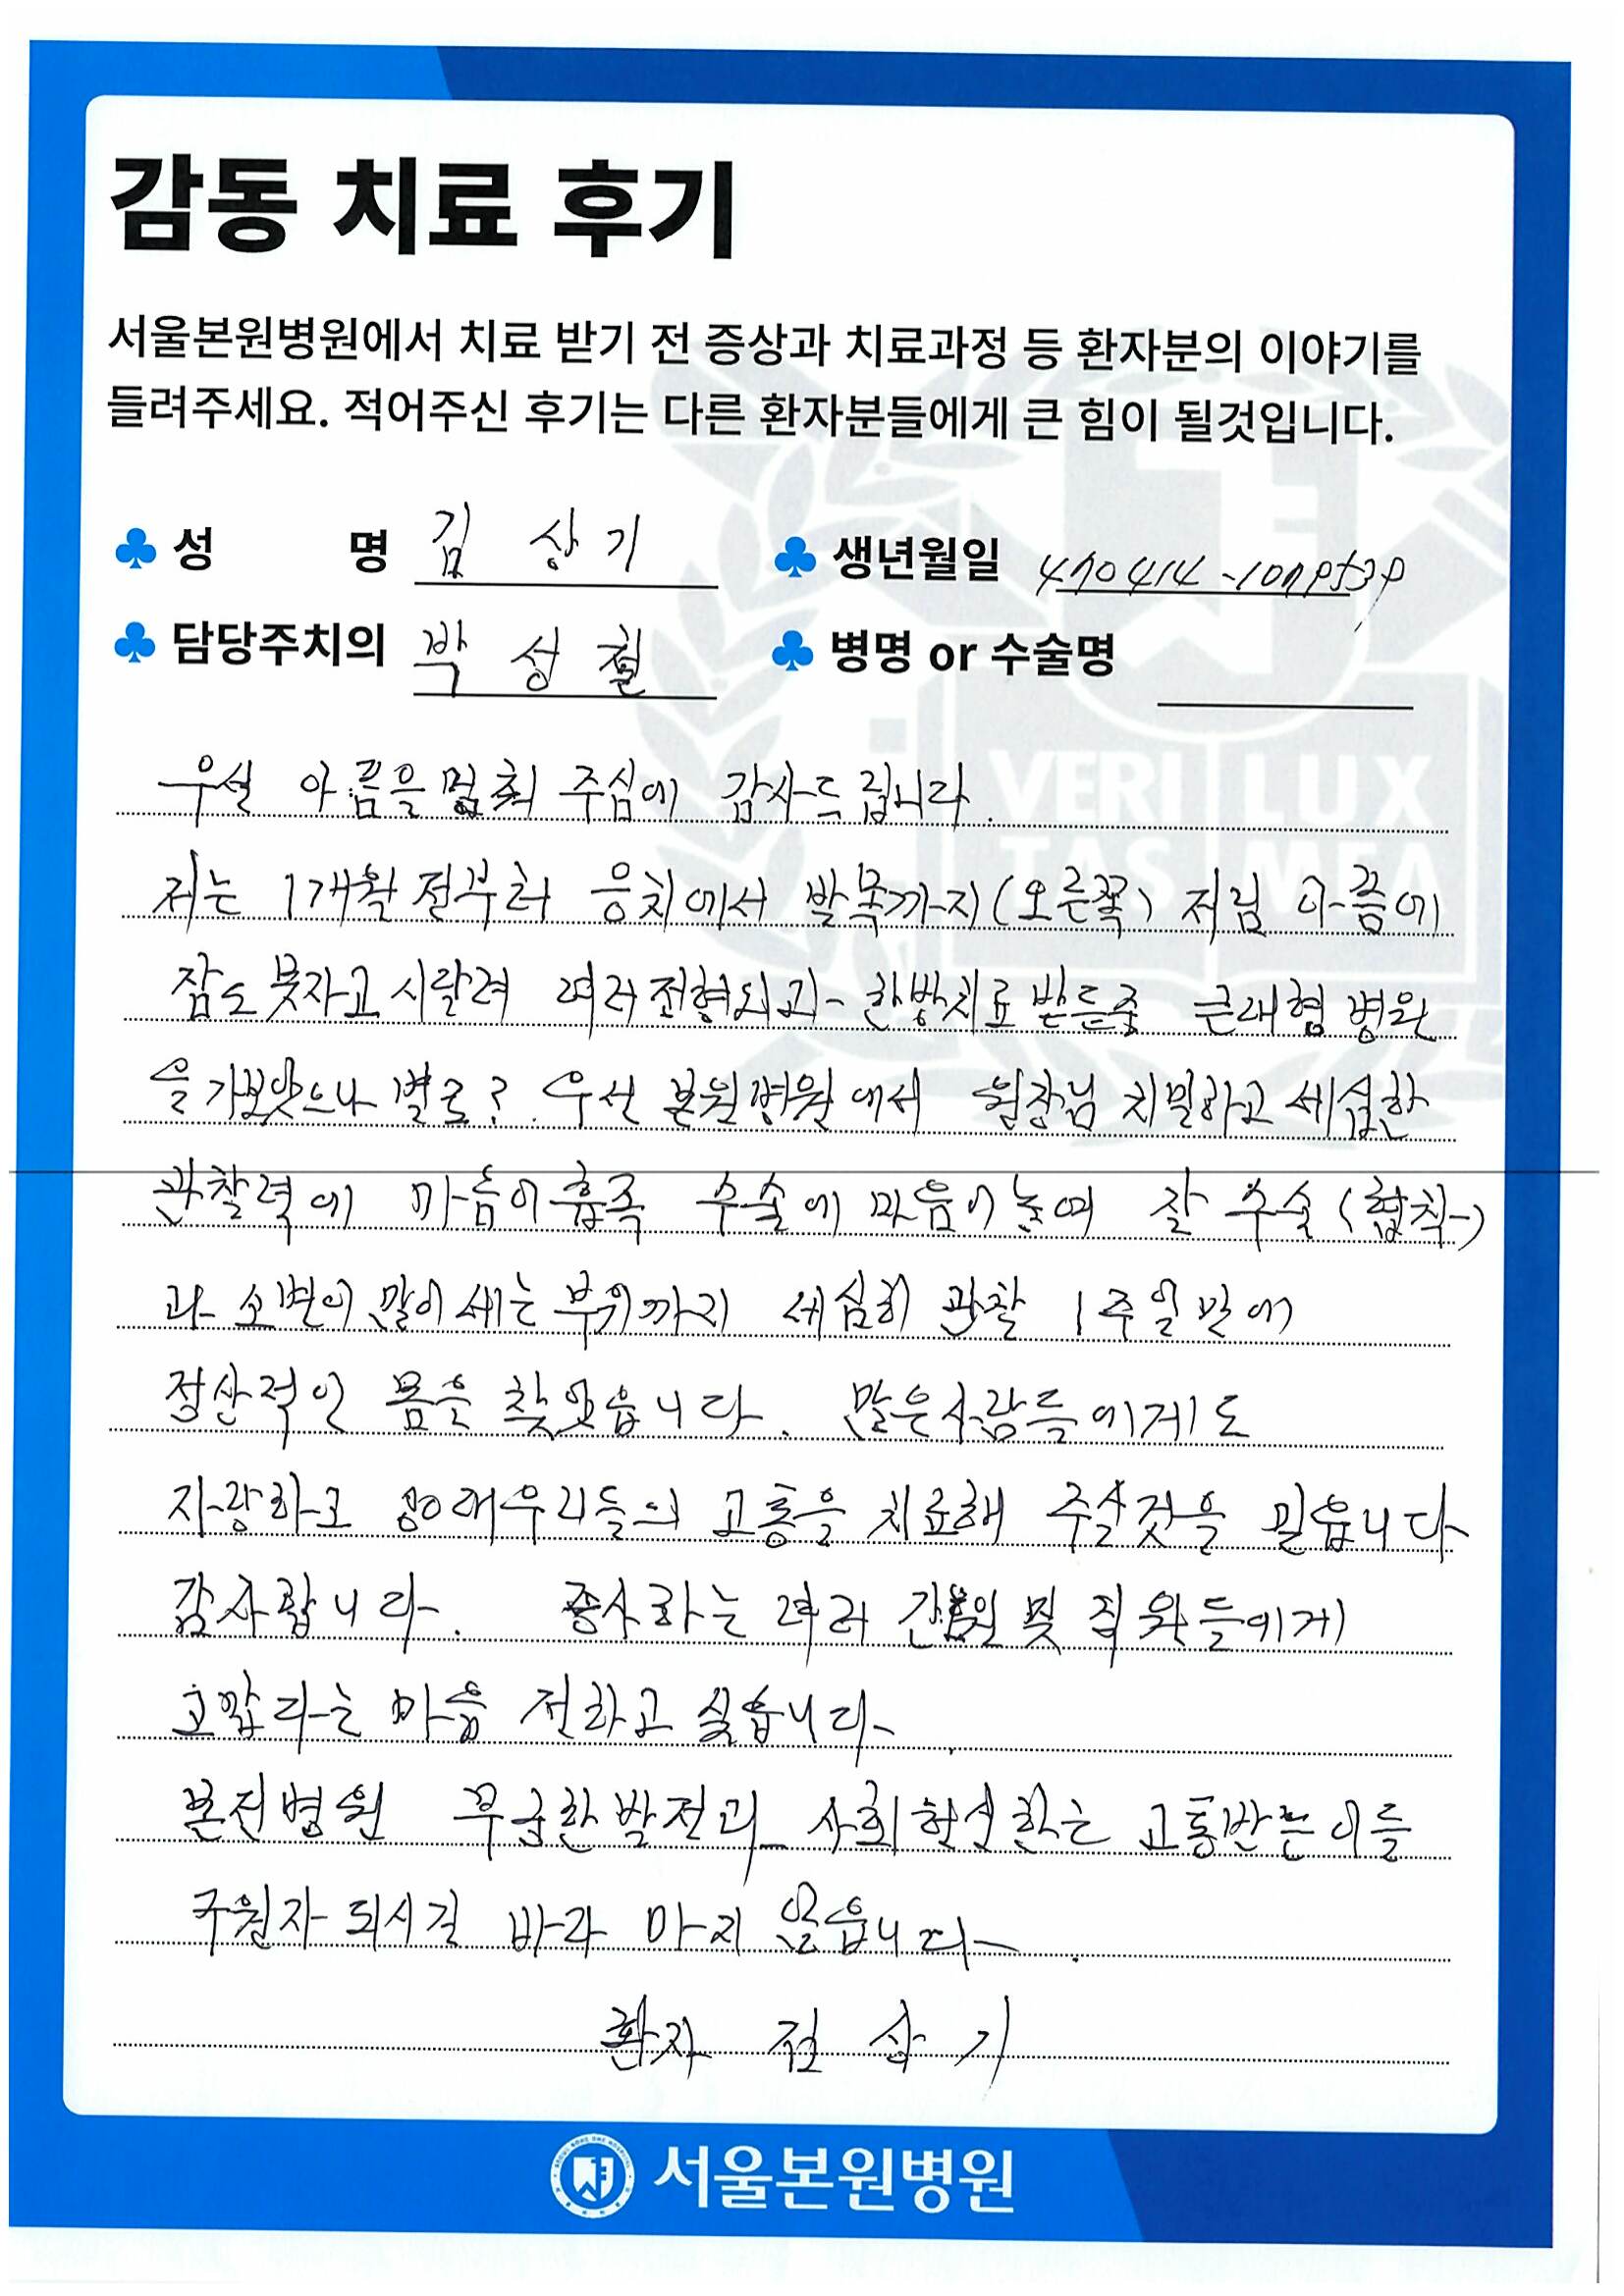 감동 치료 후기
서울본원병원에서 치료 받기 전 증상과 치료과정 등 환자분의 이야기를
들려주세요. 적어주신 후기는 다른 환자분들에게 큰 힘이 될것입니다.
성 명 김 상 기 생년월일
담당주치의 박 성 철 병명 or 수술명
VERI LUX
TAS MEA
우선 아픔을 멈춰 주심에 감사드립니다.
저는 1개월 전부터 응치에서 발목까지(오른쪽) 저림 아픔에
잠도 못자고 시달려 여러 한방치료 받든중 큰대형 병원
을 가보앗으나 별로? 우선 본원병원에서 원장님 치밀하고 세심한
관찰력에 마음이흡족 수술에 마음이 놓여 잘 수술 (협착)
과 소변이 많이 세는 부위까지 세심히 관찰 1주일만에
정상적인 몸을 찾았읍니다. 많은사람들에게도
자랑하고 우리들의 고통을 치료해 주실것을 믿읍니다
감사합니다. 종사하는 여러 및 직원들에게
고맙다는 마음 전하고 싶습니다
병원 무궁한발전과 사회 고통받는이들
구원자 되시길 바라 마지 않읍니다.
환자 김 상 기
서울본원병원